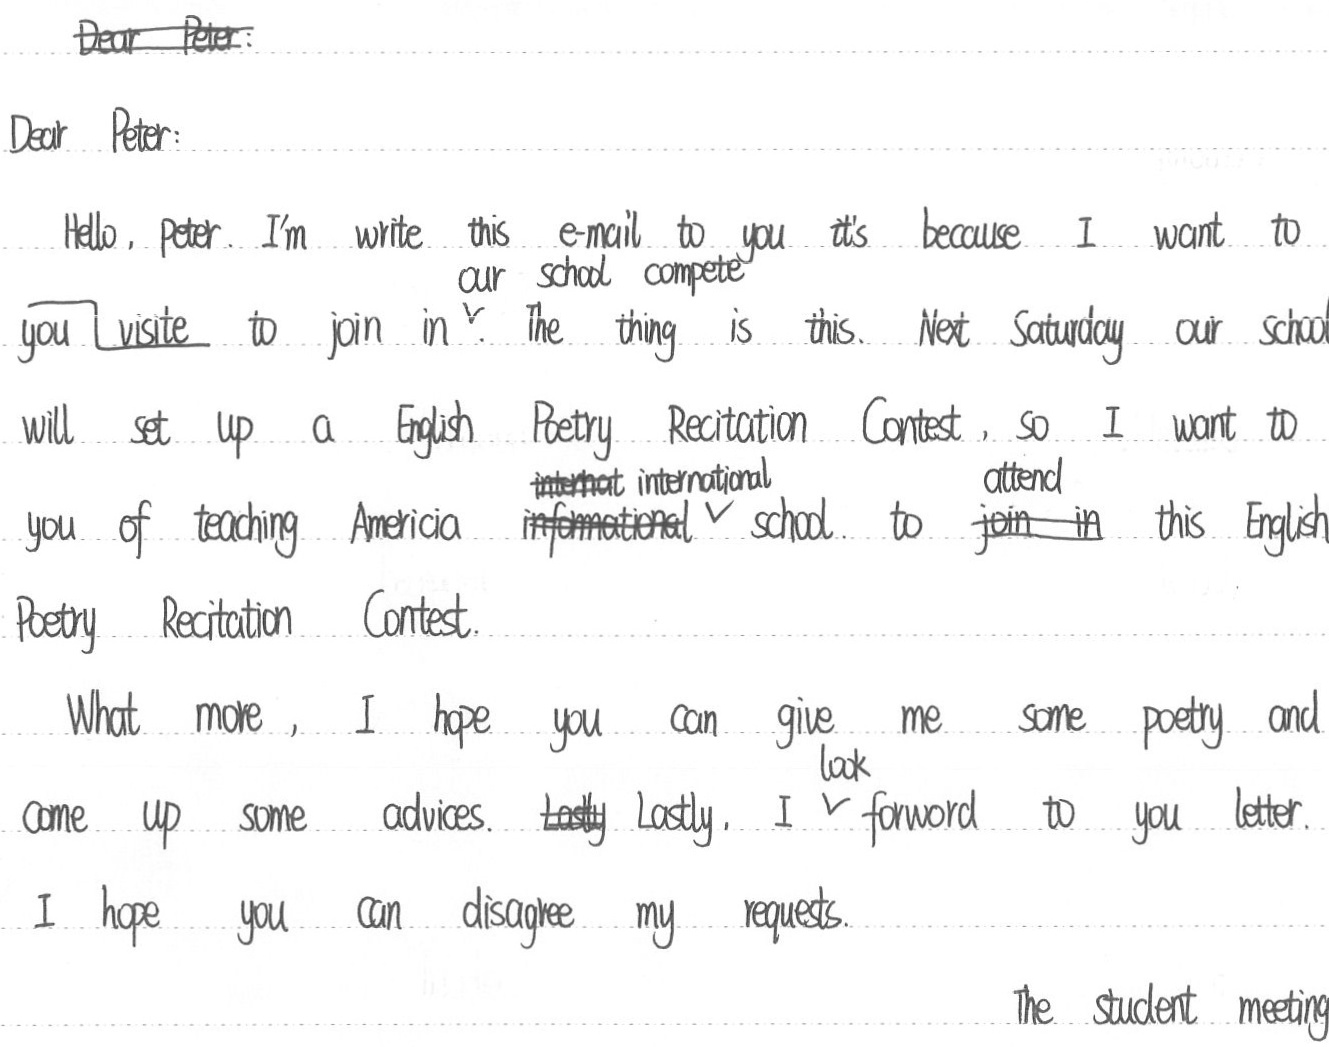 Dear Peter:
Dear Peter:
Hello, peter. I'm write this e-mail to you it's because I want to
our school compete
you visite to join in . The thing is this. Next Saturday our school
will set up a English Poetry Recitation Contest, so I want to
internat international attend
you of teaching Americia informational school to join in this English
Poetry Recitation Contest.
What more, I hope you can give me some poetry and
look
come up some advices. Lastly Lastly, I forword to you letter.
I hope you can disagree my requests.
The student meeting